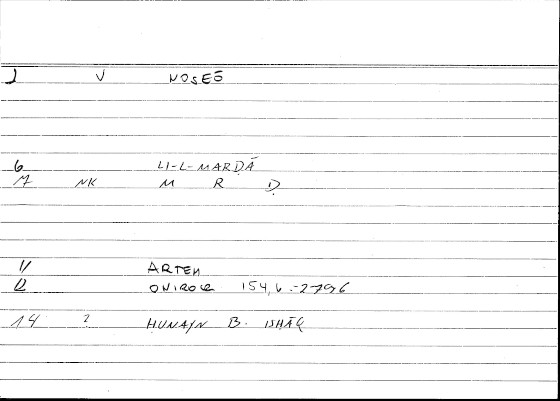 2 V NOSEŌ
6 LI-L-MARḌĀ
7 NK M R Ḍ
11 ARTEM
12 ONIROCR 154,6.-279,6
14 ? HUNAYN B. ISHĀQ